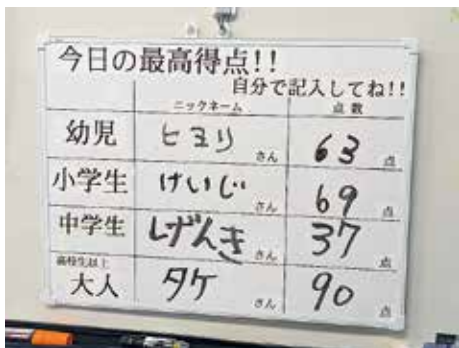 今日の最高得点!!
自分で記入してね!!
ニックネーム 点数
幼児 ヒヨリ さん 63 点
小学生 けいじ さん 69 点
中学生 げんき さん 37 点
高校生以上
大人 タケ さん 90 点